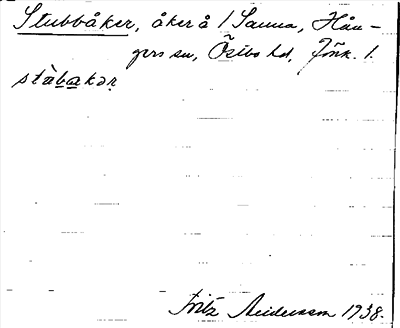 Stubbåker, åker å 1 Sanna, Hån-
gers sn, Östbo hd, Jönk. l.
stàbakər
Fritz Andersson 1938.